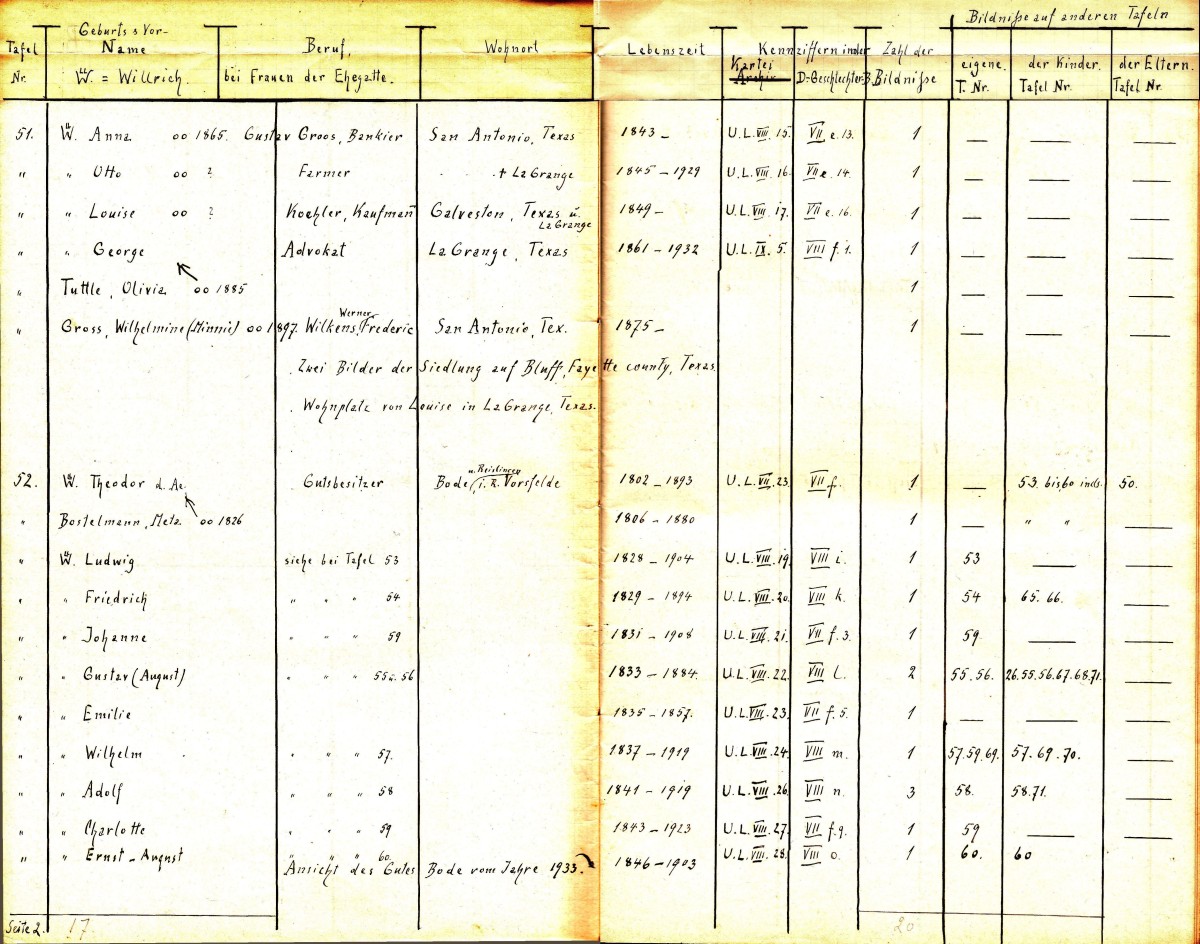 Bildniße auf anderen Tafeln
Tafel Nr. | Geburts & Vor-Name Ww. = Willrich. | Beruf, bei Frauen der Ehegatte. | Wohnort | Lebenszeit | Kennziffern in der Kartei Archiv D.-Geschlechter-B. | Zahl der Bildniße | eigene. T. Nr. | der Kinder. Tafel Nr. | der Eltern. Tafel Nr.
51. W. Anna oo 1865. Gustav Groos, Bankier San Antonio, Texas 1843 – U.L.VIII.15. VII e.13. 1 — — —
" " Otto oo ? Farmer + La Grange 1845 – 1929 U.L.VIII.16. VII e.14. 1 — — —
" " Louise oo ? Koehler, Kaufmañ Galveston, Texas u. La Grange 1849 – U.L.VIII.17. VII e.16. 1 — — —
" " George Advokat La Grange, Texas 1861 – 1932 U.L.IX.5. VIII f.1. 1 — — —
" Tuttle, Olivia oo 1885 1 — — —
" Gross, Wilhelmine (Minnie) oo 1897. Wilkens, Werner Frederic San Antonio, Tex. 1875 – 1 — — —
Zwei Bilder der Siedlung auf Bluff, Fayette county, Texas.
Wohnplatz von Louise in La Grange, Texas.
52. W. Theodor d. Ae. Gutsbesitzer Bode u. Reislingen i. K. Vorsfelde 1802 – 1893 U.L.VII.23. VII f. 1 — 53. bis 60 incls. 50.
" Bostelmann, Meta oo 1826 1806 – 1880 1 — " " —
" W. Ludwig siehe bei Tafel 53 1828 – 1904 U.L.VIII.19. VIII i. 1 53 — —
" " Friedrich " " " 54 1829 – 1894 U.L.VIII.20. VIII k. 1 54 65. 66. —
" " Johanne " " " 59 1831 – 1908 U.L.VIII.21. VII f.3. 1 59. — —
" " Gustav (August) " " " 55 u. 56 1833 – 1884. U.L.VIII.22. VIII l. 2 55.56. 26.55.56.67.68.71. —
" " Emilie 1835 – 1857. U.L.VIII.23. VII f.5. 1 — — —
" " Wilhelm " " " 57. 1837 – 1919 U.L.VIII.24. VIII m. 1 57.59.69. 57.69.70. —
" " Adolf " " " 58 1841 – 1919 U.L.VIII.26. VIII n. 3 58. 58.71. —
" " Charlotte " " " 59 1843 – 1923 U.L.VIII.27. VII f.9. 1 59 — —
" " Ernst-August " " " 60. 1846 – 1903 U.L.VIII.28. VIII o. 1 60. 60
Ansicht des Gutes Bode vom Jahre 1933.
Seite 2. 17. 20